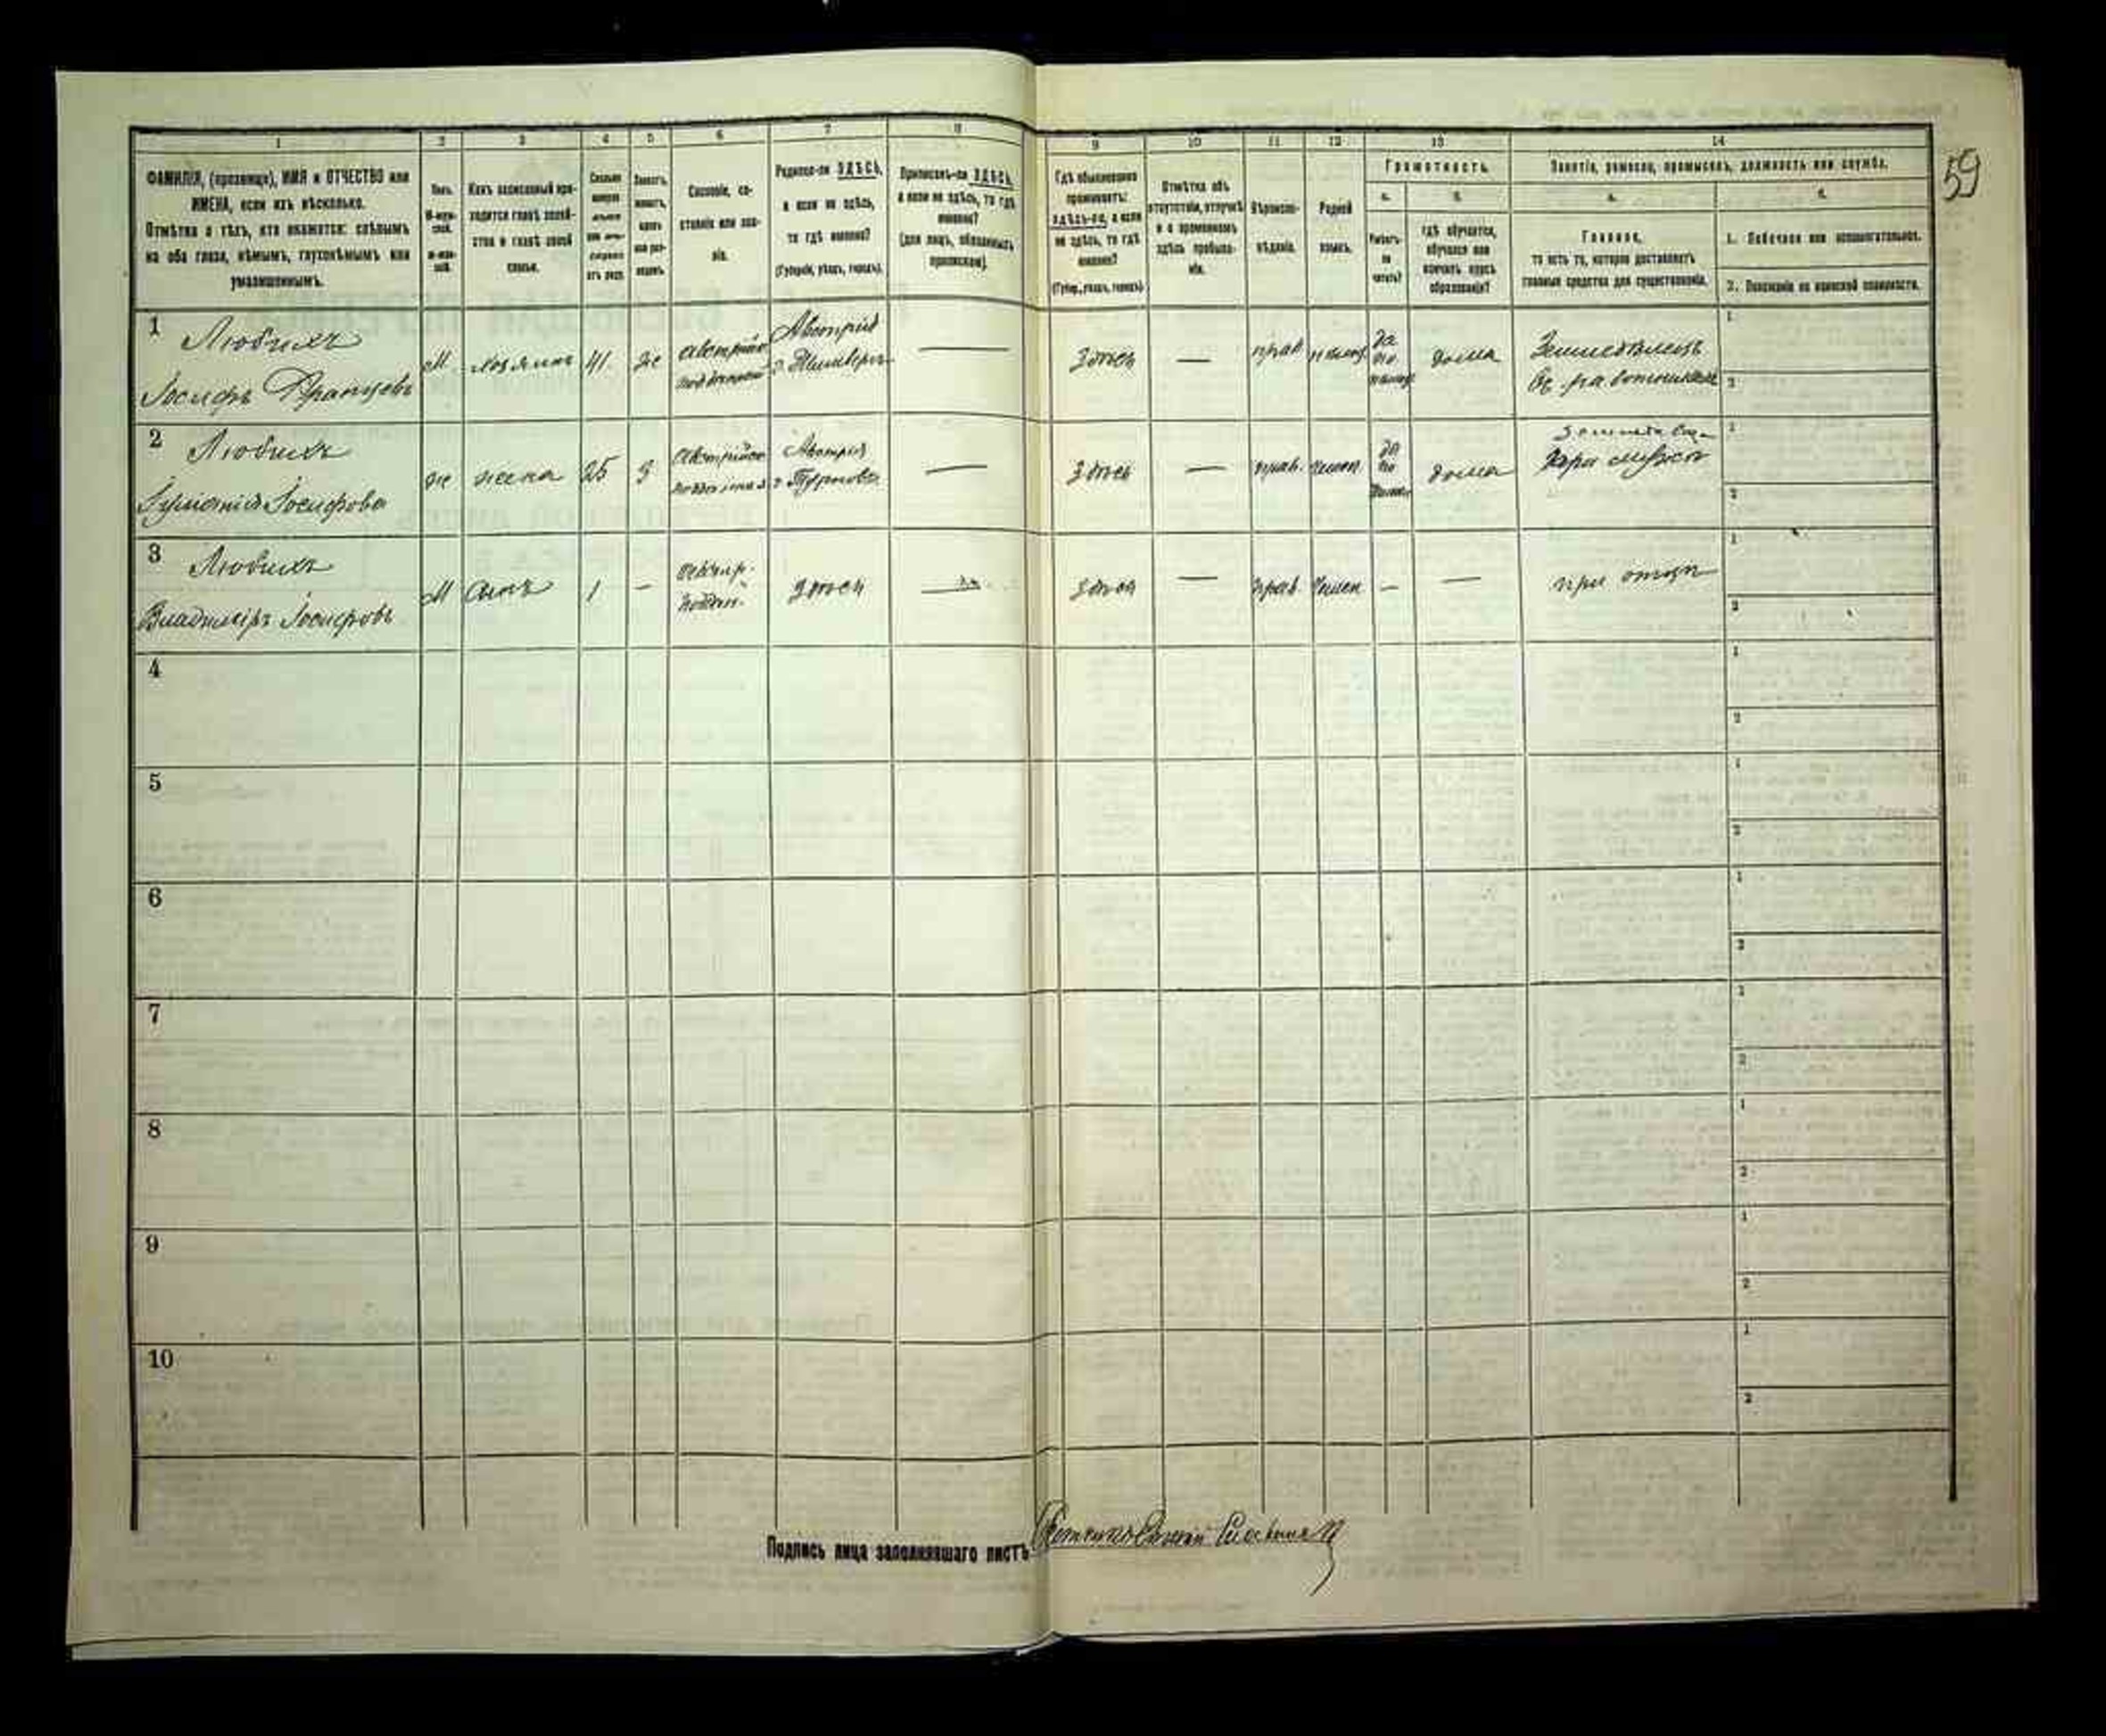 1
2
3
4
5
6
7
8
9
10
11
12
13
14
59
ФАМИЛІЯ, (прозвище), ИМЯ и ОТЧЕСТВО или
ИМЕНА, если ихъ нѣсколько.
Отмѣтка о тѣхъ, кто окажется: слѣпымъ
на оба глаза, нѣмымъ, глухонѣмымъ или
умалишеннымъ.
Полъ.
М-муж-
ской.
Какъ записанный при-
ходится главѣ хозяй-
ства и главѣ своей
семьи.
Сколько
отъ роду.
Сословіе, со-
стояніе или зва-
ніе.
Родился-ли ЗДѢСЬ,
а если не здѣсь,
то гдѣ именно?
(Губернія, уѣздъ, городъ).
Приписанъ-ли ЗДѢСЬ,
а если не здѣсь, то гдѣ
именно?
(для лицъ, обязанныхъ
припискою).
Гдѣ обыкновенно
проживаетъ:
здѣсь-ли, а если
не здѣсь, то гдѣ
именно?
(Губер., уѣздъ, городъ).
Отмѣтка объ
отсутствіи, отлучкѣ
и о временномъ
здѣсь пребыва-
ніи.
Вѣроиспо-
вѣданіе.
Родной
языкъ.
Грамотность.
а.
б.
Умѣетъ-
ли
читать?
гдѣ обучается,
обучался или
кончилъ курсъ
образованія?
Занятіе, ремесло, промыселъ, должность или служба.
а.
б.
Главное,
то есть то, которое доставляетъ
главныя средства для существованія.
1. Побочное или вспомогательное.
2. Положеніе по воинской повинности.
1 Любихъ
Іосифъ Францевъ
М
хозяинъ
41
же
австрійск
подданный
Австрія
———
Здѣсь
—
прав
чешск
да
по
чешск
дома
Земледѣлецъ
съ работникомъ
1
2
2 Любихъ
Іосифова
же
жена
25
з
австрійск
Австрія
———
Здѣсь
—
прав.
чешск
да
по
дома
при мужѣ
1
2
3 Любихъ
Владиміръ Іосифовъ
М
сынъ
1
—
австр.
поддан.
здѣсь
Здѣсь
—
прав
чешск
—
—
при отцѣ
1
2
4
1
2
5
1
2
6
1
2
7
1
2
8
1
2
9
1
2
10
1
2
Подпись лица заполнявшаго листъ